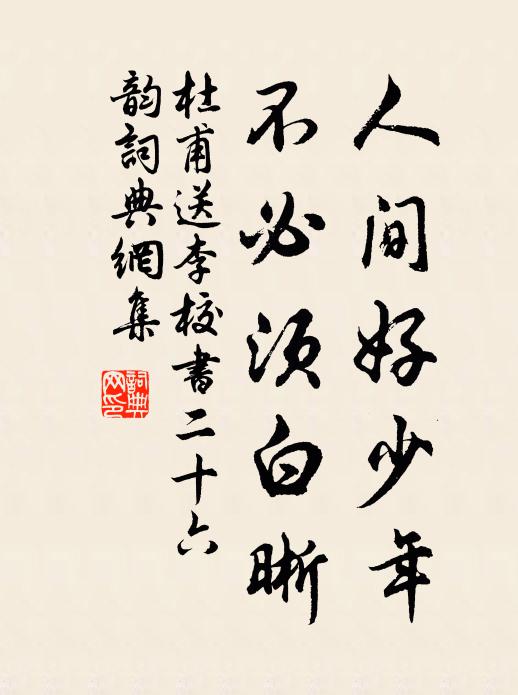 人间好少年
不必须白晰
杜甫送李校書二十六
韵詞典網集
詞典
网印